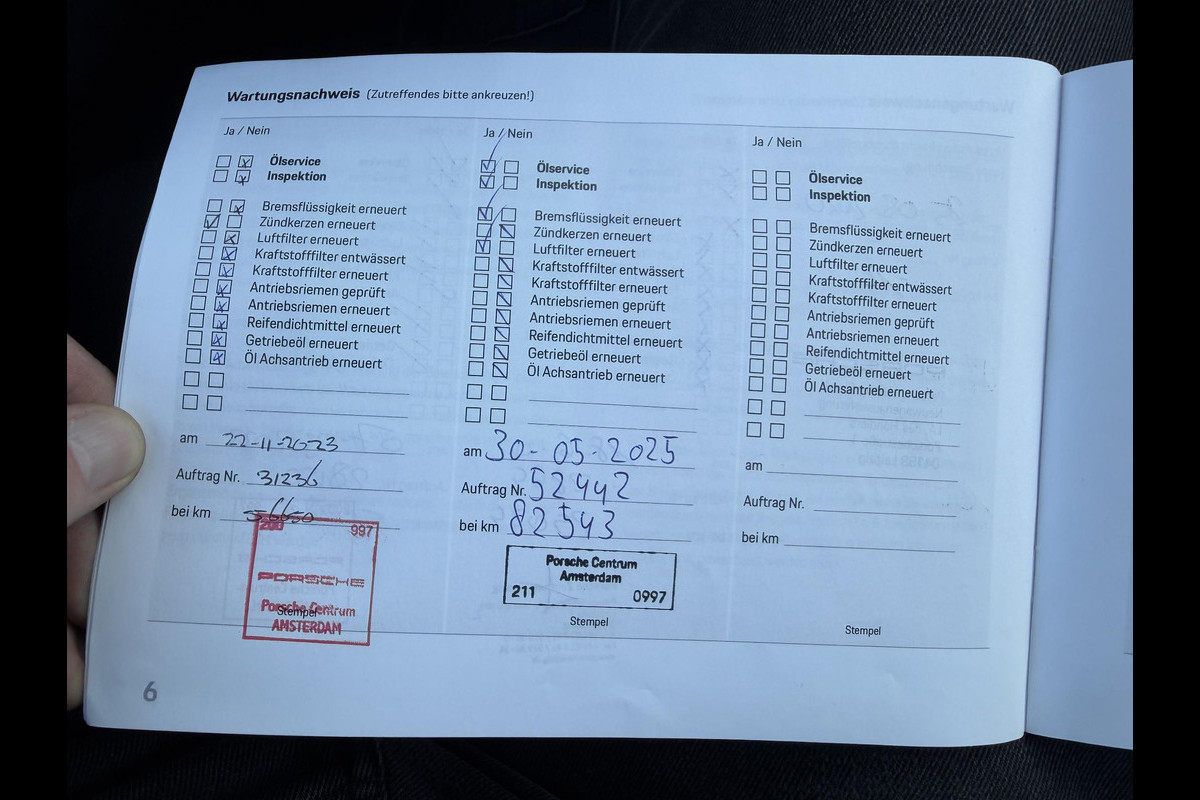 Wartungsnachweis (Zutreffendes bitte ankreuzen!)
Ja / Nein
Ölservice
Inspektion
Bremsflüssigkeit erneuert
Zündkerzen erneuert
Luftfilter erneuert
Kraftstofffilter entwässert
Kraftstofffilter erneuert
Antriebsriemen geprüft
Antriebsriemen erneuert
Reifendichtmittel erneuert
Getriebeöl erneuert
Öl Achsantrieb erneuert
am 22-11-2023
Auftrag Nr. 31236
bei km 56650
200 997
PORSCHE
Porsche Centrum
Stempel
AMSTERDAM
Ja / Nein
Ölservice
Inspektion
Bremsflüssigkeit erneuert
Zündkerzen erneuert
Luftfilter erneuert
Kraftstofffilter entwässert
Kraftstofffilter erneuert
Antriebsriemen geprüft
Antriebsriemen erneuert
Reifendichtmittel erneuert
Getriebeöl erneuert
Öl Achsantrieb erneuert
am 30-05-2025
Auftrag Nr. 52442
bei km 82543
Porsche Centrum
Amsterdam
211 0997
Stempel
Ja / Nein
Ölservice
Inspektion
Bremsflüssigkeit erneuert
Zündkerzen erneuert
Luftfilter erneuert
Kraftstofffilter entwässert
Kraftstofffilter erneuert
Antriebsriemen geprüft
Antriebsriemen erneuert
Reifendichtmittel erneuert
Getriebeöl erneuert
Öl Achsantrieb erneuert
am
Auftrag Nr.
bei km
Stempel
6